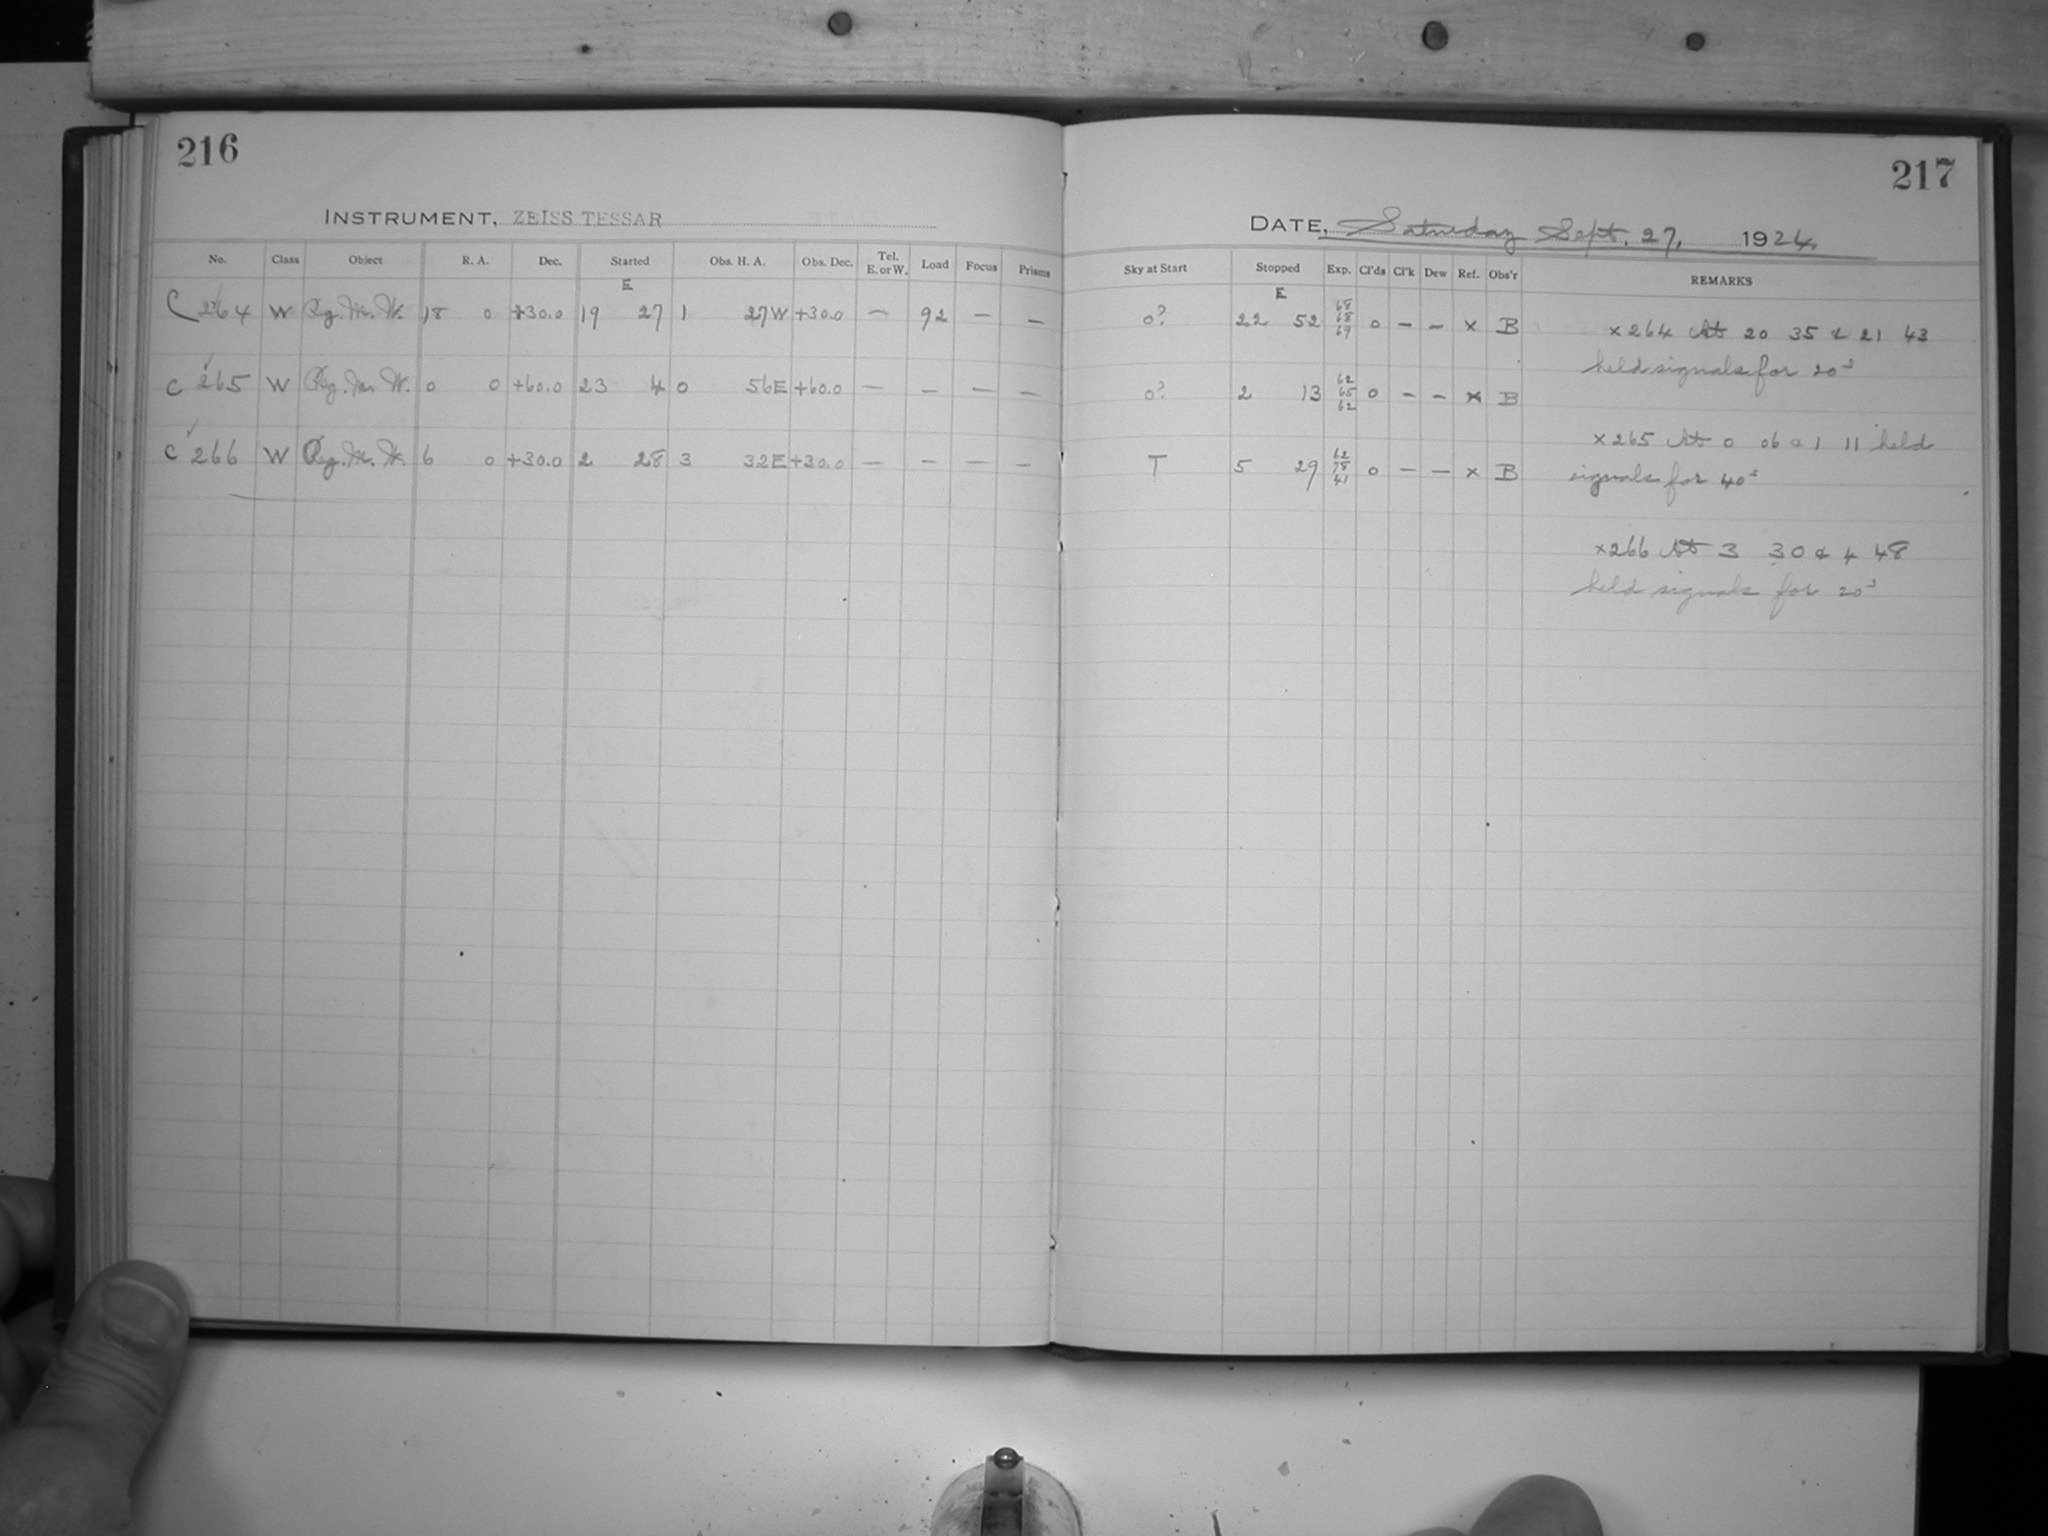 216
INSTRUMENT, ZEISS TESSAR
No. Class Object R. A. Dec. Started Obs. H. A. Obs. Dec. Tel. E. or W. Load Focus Prisms
E
C 264 W Reg. M. W. 18 0 +30.0 19 27 1 27W +30.0 — 92 — —
C 265 W Reg. M. W. 0 0 +60.0 23 4 0 56E +60.0 — — — —
C 266 W Reg. M. W. 6 0 +30.0 2 28 3 32E +30.0 — — — —
217
DATE, Saturday Sept. 27, 1924.
Sky at Start Stopped Exp. Cl'ds Cl'k Dew Ref. Obs'r REMARKS
E
o? 22 52 68 68 69 0 — — x B
x264 At 20 35 & 21 43
held signals for 20s
o? 2 13 62 65 62 0 — — x B
x265 At 0 06 & 1 11 held
signals for 40s
T 5 29 62 78 41 0 — — x B
x266 At 3 30 & 4 48
held signals for 20s